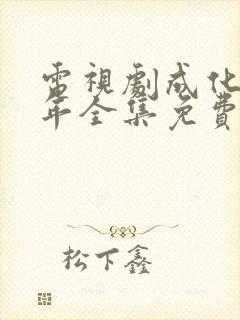 電視劇成化
年全集免費
松下鑫